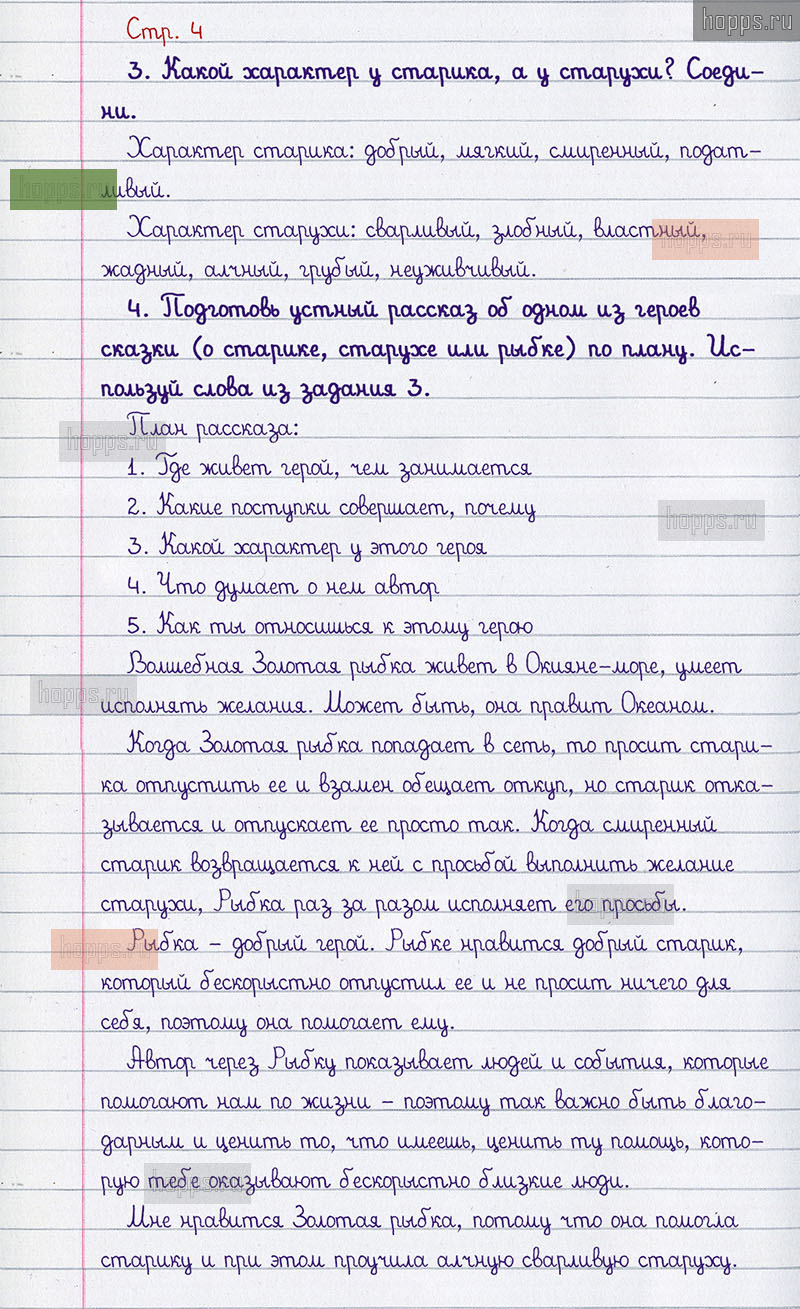 hopps.ru
Стр. 4
3. Какой характер у старика, а у старухи? Соеди-
ни.
Характер старика: добрый, мягкий, смиренный, подат-
hopps.ru
ливый.
Характер старухи: сварливый, злобный, властный,
hopps.ru
жадный, алчный, грубый, неуживчивый.
4. Подготовь устный рассказ об одном из героев
сказки (о старике, старухе или рыбке) по плану. Ис-
пользуй слова из задания 3.
План рассказа:
hopps.ru
1. Где живет герой, чем занимается
2. Какие поступки совершает, почему
hopps.ru
3. Какой характер у этого героя
4. Что думает о нем автор
5. Как ты относишься к этому герою
Волшебная Золотая рыбка живет в Окияне-море, умеет
hopps.ru
исполнять желания. Может быть, она правит Океаном.
Когда Золотая рыбка попадает в сеть, то просит стари-
ка отпустить ее и взамен обещает откуп, но старик отка-
зывается и отпускает ее просто так. Когда смиренный
старик возвращается к ней с просьбой выполнить желание
старухи, Рыбка раз за разом исполняет его просьбы.
hopps.ru
Рыбка – добрый герой. Рыбке нравится добрый старик,
hopps.ru
который бескорыстно отпустил ее и не просит ничего для
себя, поэтому она помогает ему.
Автор через Рыбку показывает людей и события, которые
помогают нам по жизни – поэтому так важно быть благо-
дарным и ценить то, что имеешь, ценить ту помощь, кото-
рую тебе оказывают бескорыстно близкие люди.
hopps.ru
Мне нравится Золотая рыбка, потому что она помогла
старику и при этом проучила алчную сварливую старуху.